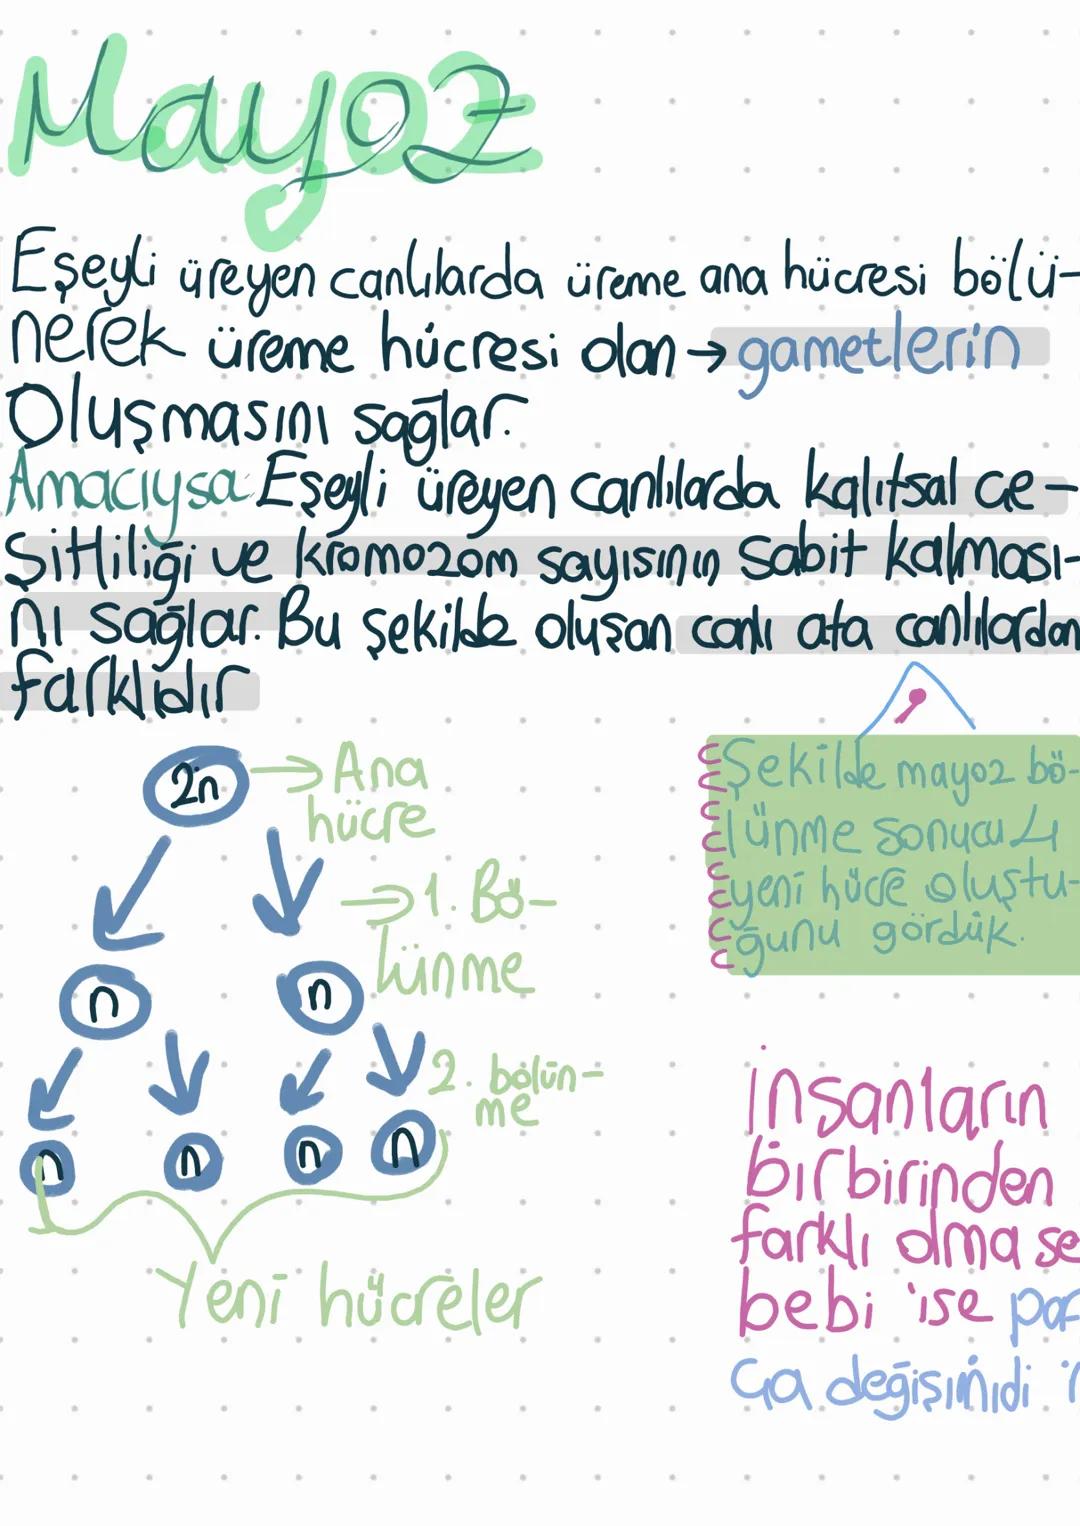 Mayoz
Eşeyli üreyen canlılarda üreme ana hücresi bölü-
nerek üreme hücresi olan → gametlerin
Oluşmasını sağlar.
Amacıysa: Eşeyli üreyen canlılarda kalıtsal çe-
şitliliği ve kromozom sayısının sabit kalması-
nı sağlar. Bu şekilde oluşan canlı ata canlılardan
farklıdır
2n → Ana
hücre
→ 1. Bö-
lünme
n n
2. bölün-
me
n n n n
Yeni hücreler
Şekilde mayoz bö-
lünme sonucu 4
yeni hücre oluştu-
ğunu gördük.
İnsanların
birbirinden
farklı olma se
bebi ise par
ça değişimidi